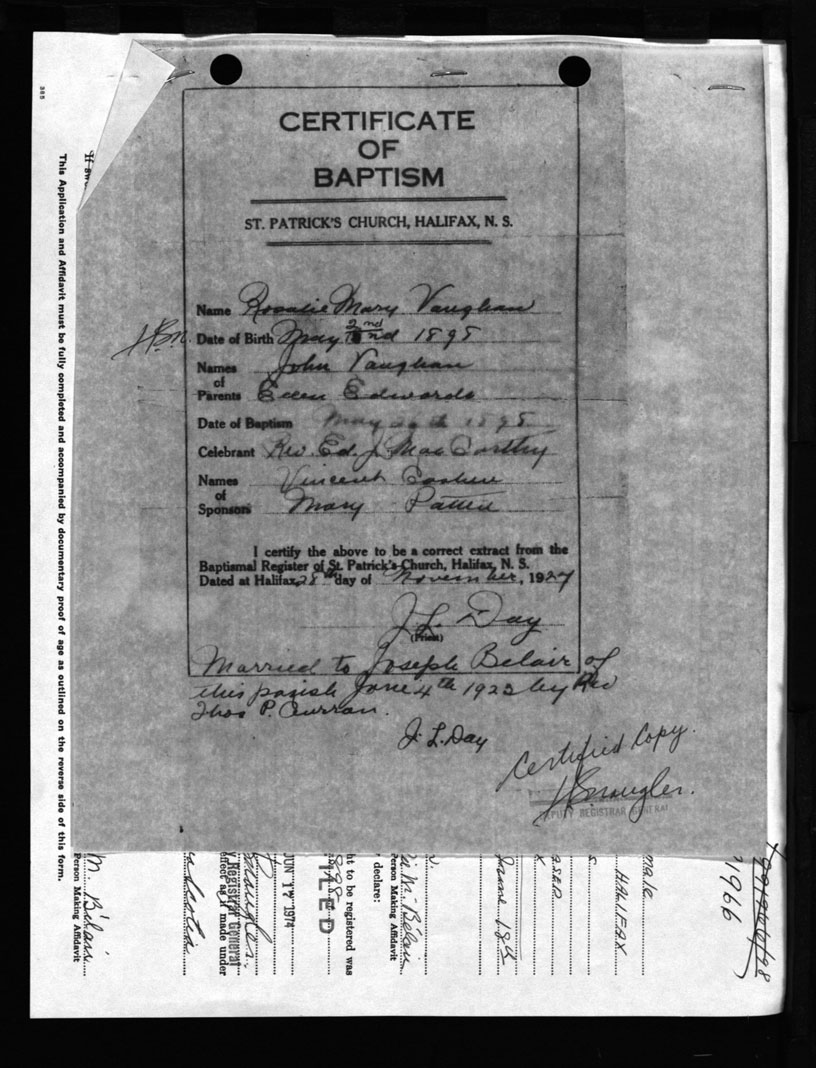 CERTIFICATE
OF
BAPTISM
ST. PATRICK'S CHURCH, HALIFAX, N. S.
Name Rosalie Mary Vaughan
Date of Birth May 2nd 1898
Names John Vaughan
of
Parents Ellen Edwards
Date of Baptism May 1898
Celebrant Rev. Ed. J. MacCarthy
Names Vincent
of
Sponsors Mary
I certify the above to be a correct extract from the
Baptismal Register of St. Patrick's Church, Halifax, N. S.
Dated at Halifax, 28th day of November, 1927
J. L. Day
(Priest)
Married to Joseph Belair of
this parish June 4th 1922 by Rev
Thos P. Curran.
J. L. Day
Certified Copy.
DEPUTY REGISTRAR GENERAL
385
This Application and Affidavit must be fully completed and accompanied by documentary proof of age as outlined on the reverse side of this form.
M. Bélair
Person Making Affidavit
Scotia
Registrar General
effect as if made under
JUN 17 1974
FILED
ht to be registered was
declare:
M. Bélair
Person Making Affidavit
HALIFAX
male
1966